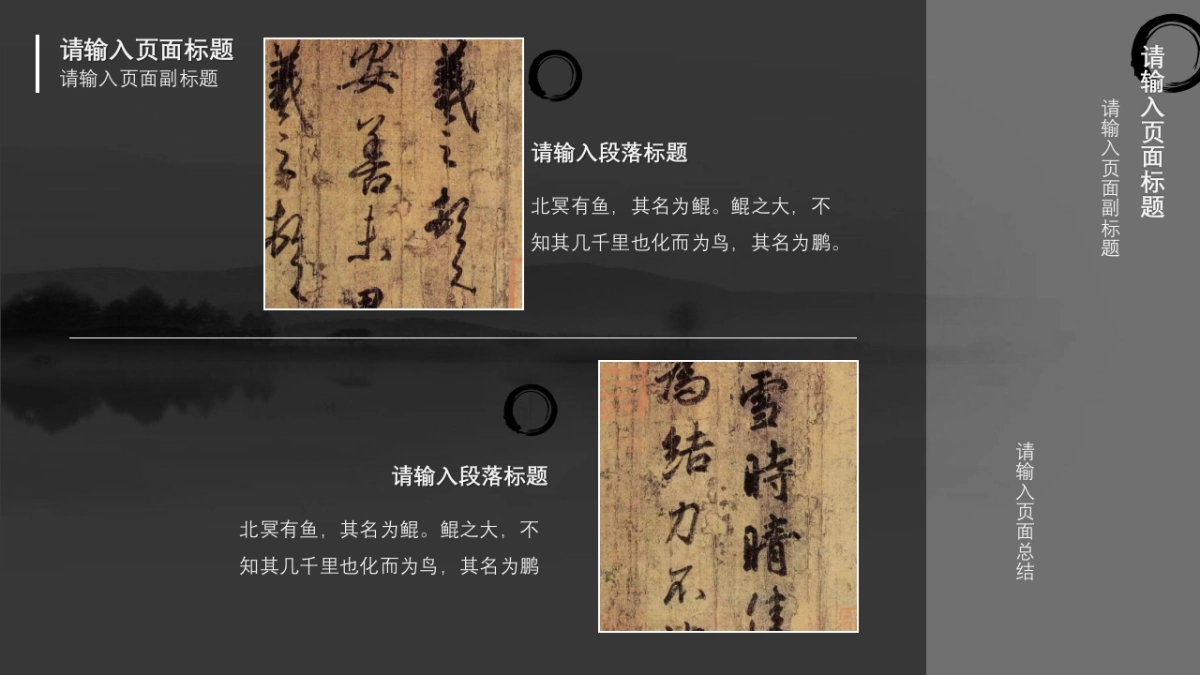 请输入页面标题
请输入页面副标题
羲之頓
安善未
羲之頓
请输入段落标题
北冥有鱼，其名为鲲。鲲之大，不
知其几千里也化而为鸟，其名为鹏。
请输入段落标题
北冥有鱼，其名为鲲。鲲之大，不
知其几千里也化而为鸟，其名为鹏
雪時晴佳
為結力不
请输入页面标题
请输入页面副标题
请输入页面总结